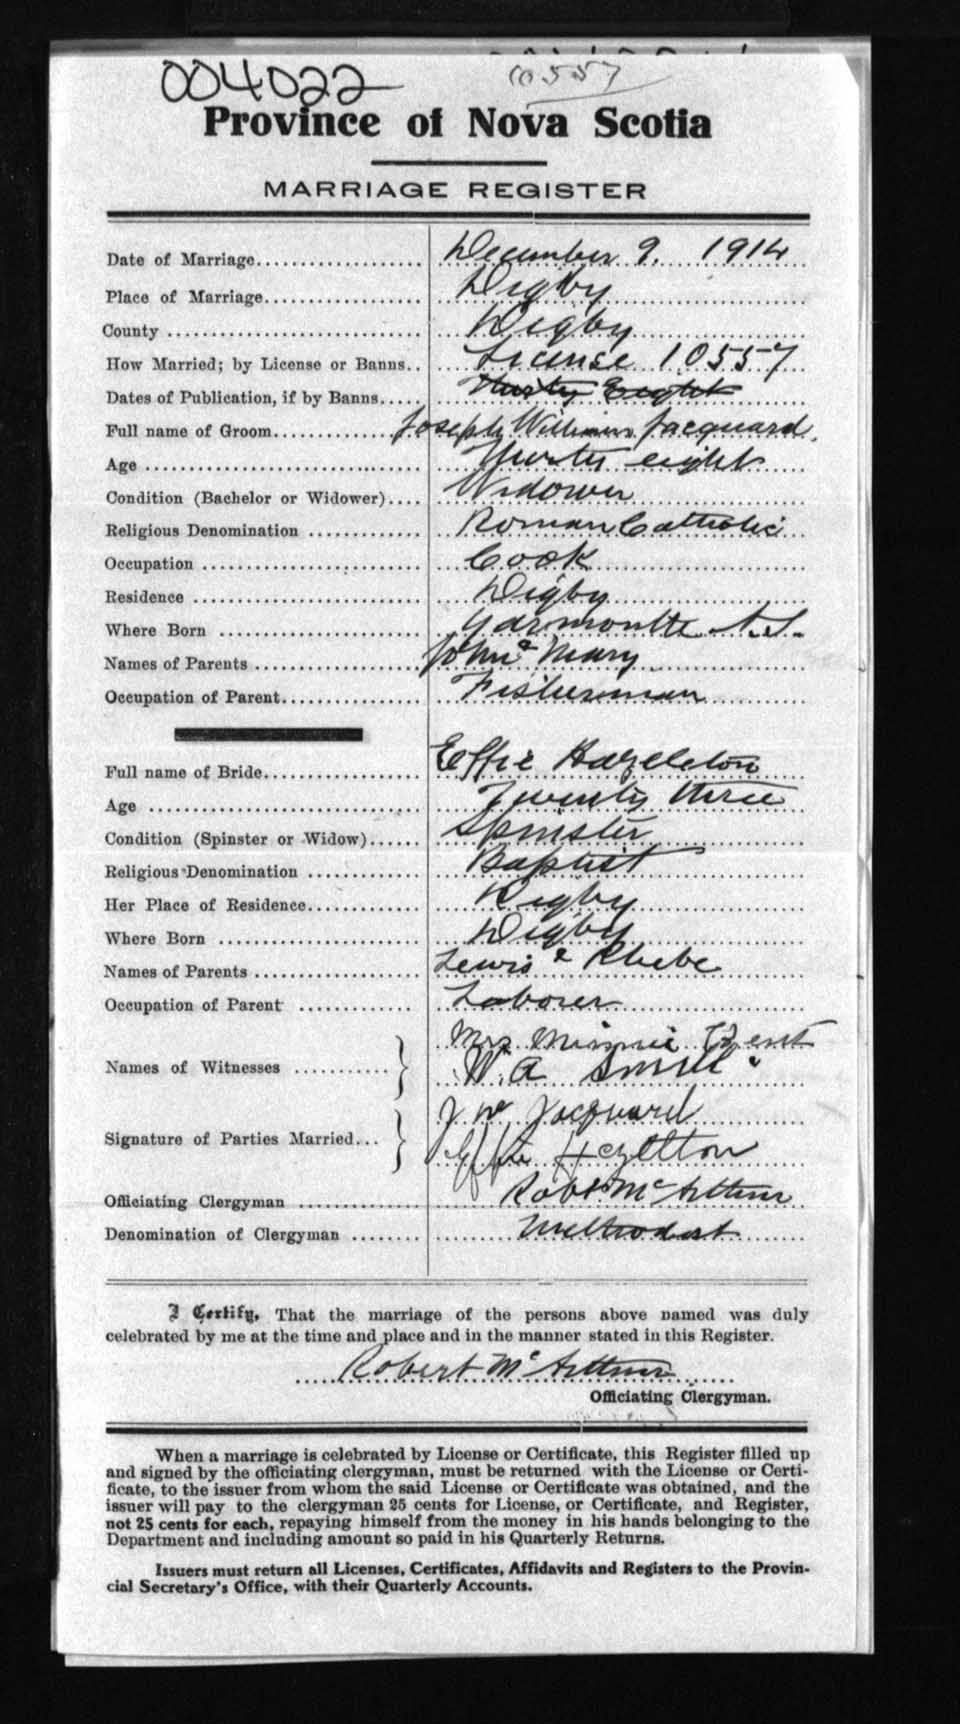 004022
10557
Province of Nova Scotia
MARRIAGE REGISTER
Date of Marriage................... December 9. 1914
Place of Marriage.................. Digby
County ............................ Digby
How Married; by License or Banns.. License 10557
Dates of Publication, if by Banns..... Thirty Eight
Full name of Groom............... Joseph William Jacquard.
Age ............................... Thirty eight
Condition (Bachelor or Widower).... Widower
Religious Denomination ............. Roman Catholic
Occupation ........................ Cook
Residence ......................... Digby
Where Born ....................... Yarmouth N.S.
Names of Parents .................. John & Mary
Occupation of Parent............... Fisherman
Full name of Bride.................. Effie Hazelton
Age ............................... Twenty three
Condition (Spinster or Widow)...... Spinster
Religious Denomination ............. Baptist
Her Place of Residence............. Digby
Where Born ....................... Digby
Names of Parents .................. Lewis & Phebe
Occupation of Parent ............. Laborer
Names of Witnesses ........... Mrs Minnie
W. A
Signature of Parties Married... J W Jacquard
Effie Hazelton
Officiating Clergyman .............. Robt McArthur
Denomination of Clergyman ........ Methodist
I Certify, That the marriage of the persons above named was duly
celebrated by me at the time and place and in the manner stated in this Register.
Robert McArthur
Officiating Clergyman.
When a marriage is celebrated by License or Certificate, this Register filled up
and signed by the officiating clergyman, must be returned with the License or Certi-
ficate, to the issuer from whom the said License or Certificate was obtained, and the
issuer will pay to the clergyman 25 cents for License, or Certificate, and Register,
not 25 cents for each, repaying himself from the money in his hands belonging to the
Department and including amount so paid in his Quarterly Returns.
Issuers must return all Licenses, Certificates, Affidavits and Registers to the Provin-
cial Secretary's Office, with their Quarterly Accounts.